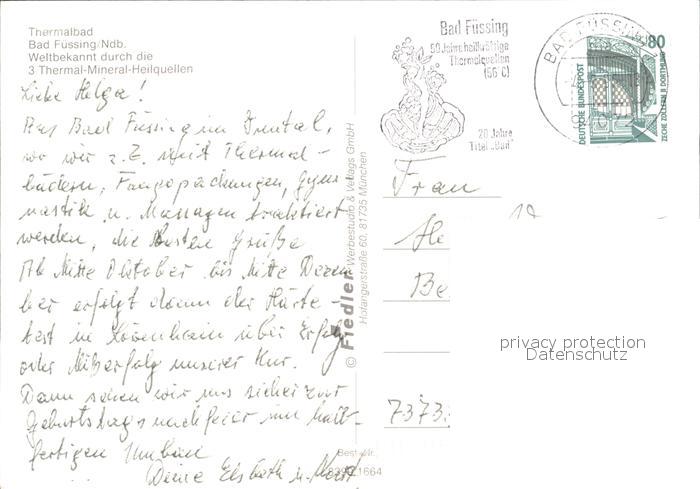 Thermalbad
Bad Füssing/Ndb.
Weltbekannt durch die
3 Thermal-Mineral-Heilquellen
Liebe Helga!
Aus Bad Füssing im Inntal,
wo wir z.Z. mit Thermal-
bädern, Fangopackungen, Gym-
nastik u. Massagen traktiert
werden, die besten Grüße
Ab Mitte Oktober bis Mitte Dezem
ber erfolgt dann der Härte-
test in über Erfolg
oder Mißerfolg unserer Kur.
Dann sehen wir uns sicher zur
Geburtstagsnachfeier im halb-
fertigen Umbau
Deine Elsbeth u. Horst
© Fiedler Werbestudio & Verlags GmbH
Hofangerstraße 60, 81735 München
Best-Nr.
1664
Bad Füssing
50 Jahre heilkräftige
Thermalquellen
(56°C)
20 Jahre
Titel „Bad"
BAD FÜSSING
80
DEUTSCHE BUNDESPOST
ZECHE ZOLLERN II DORTMUND
Frau
He
Be
7373
privacy protection
Datenschutz